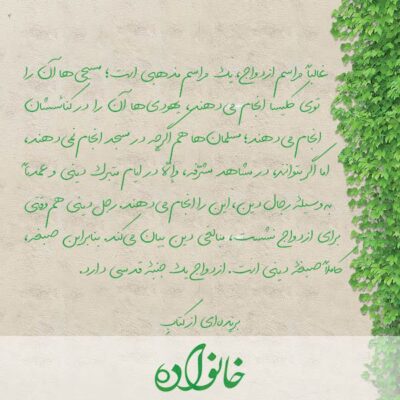 غالباً مراسم ازدواج، یک مراسم مذهبی است؛ مسیحی‌ها آن را
توی کلیسا انجام می‌دهند، یهودی‌ها آن را در کنائسشان
انجام می‌دهند؛ مسلمان‌ها هم اگرچه در مسجد انجام نمی‌دهند،
اما اگر بتوانند، در مشاهد مشرّفه، والّا در ایام متبرک دینی و عمدتاً
به وسیلهٔ رجال دین، این را انجام می‌دهند. رجل دینی هم وقتی
برای ازدواج نشست، مبالغی دین بیان می‌کند. بنابراین صبغه،
کاملاً صبغهٔ دینی است. ازدواج یک جنبهٔ قدسی دارد.
بریده‌ای از کتاب
خانواده